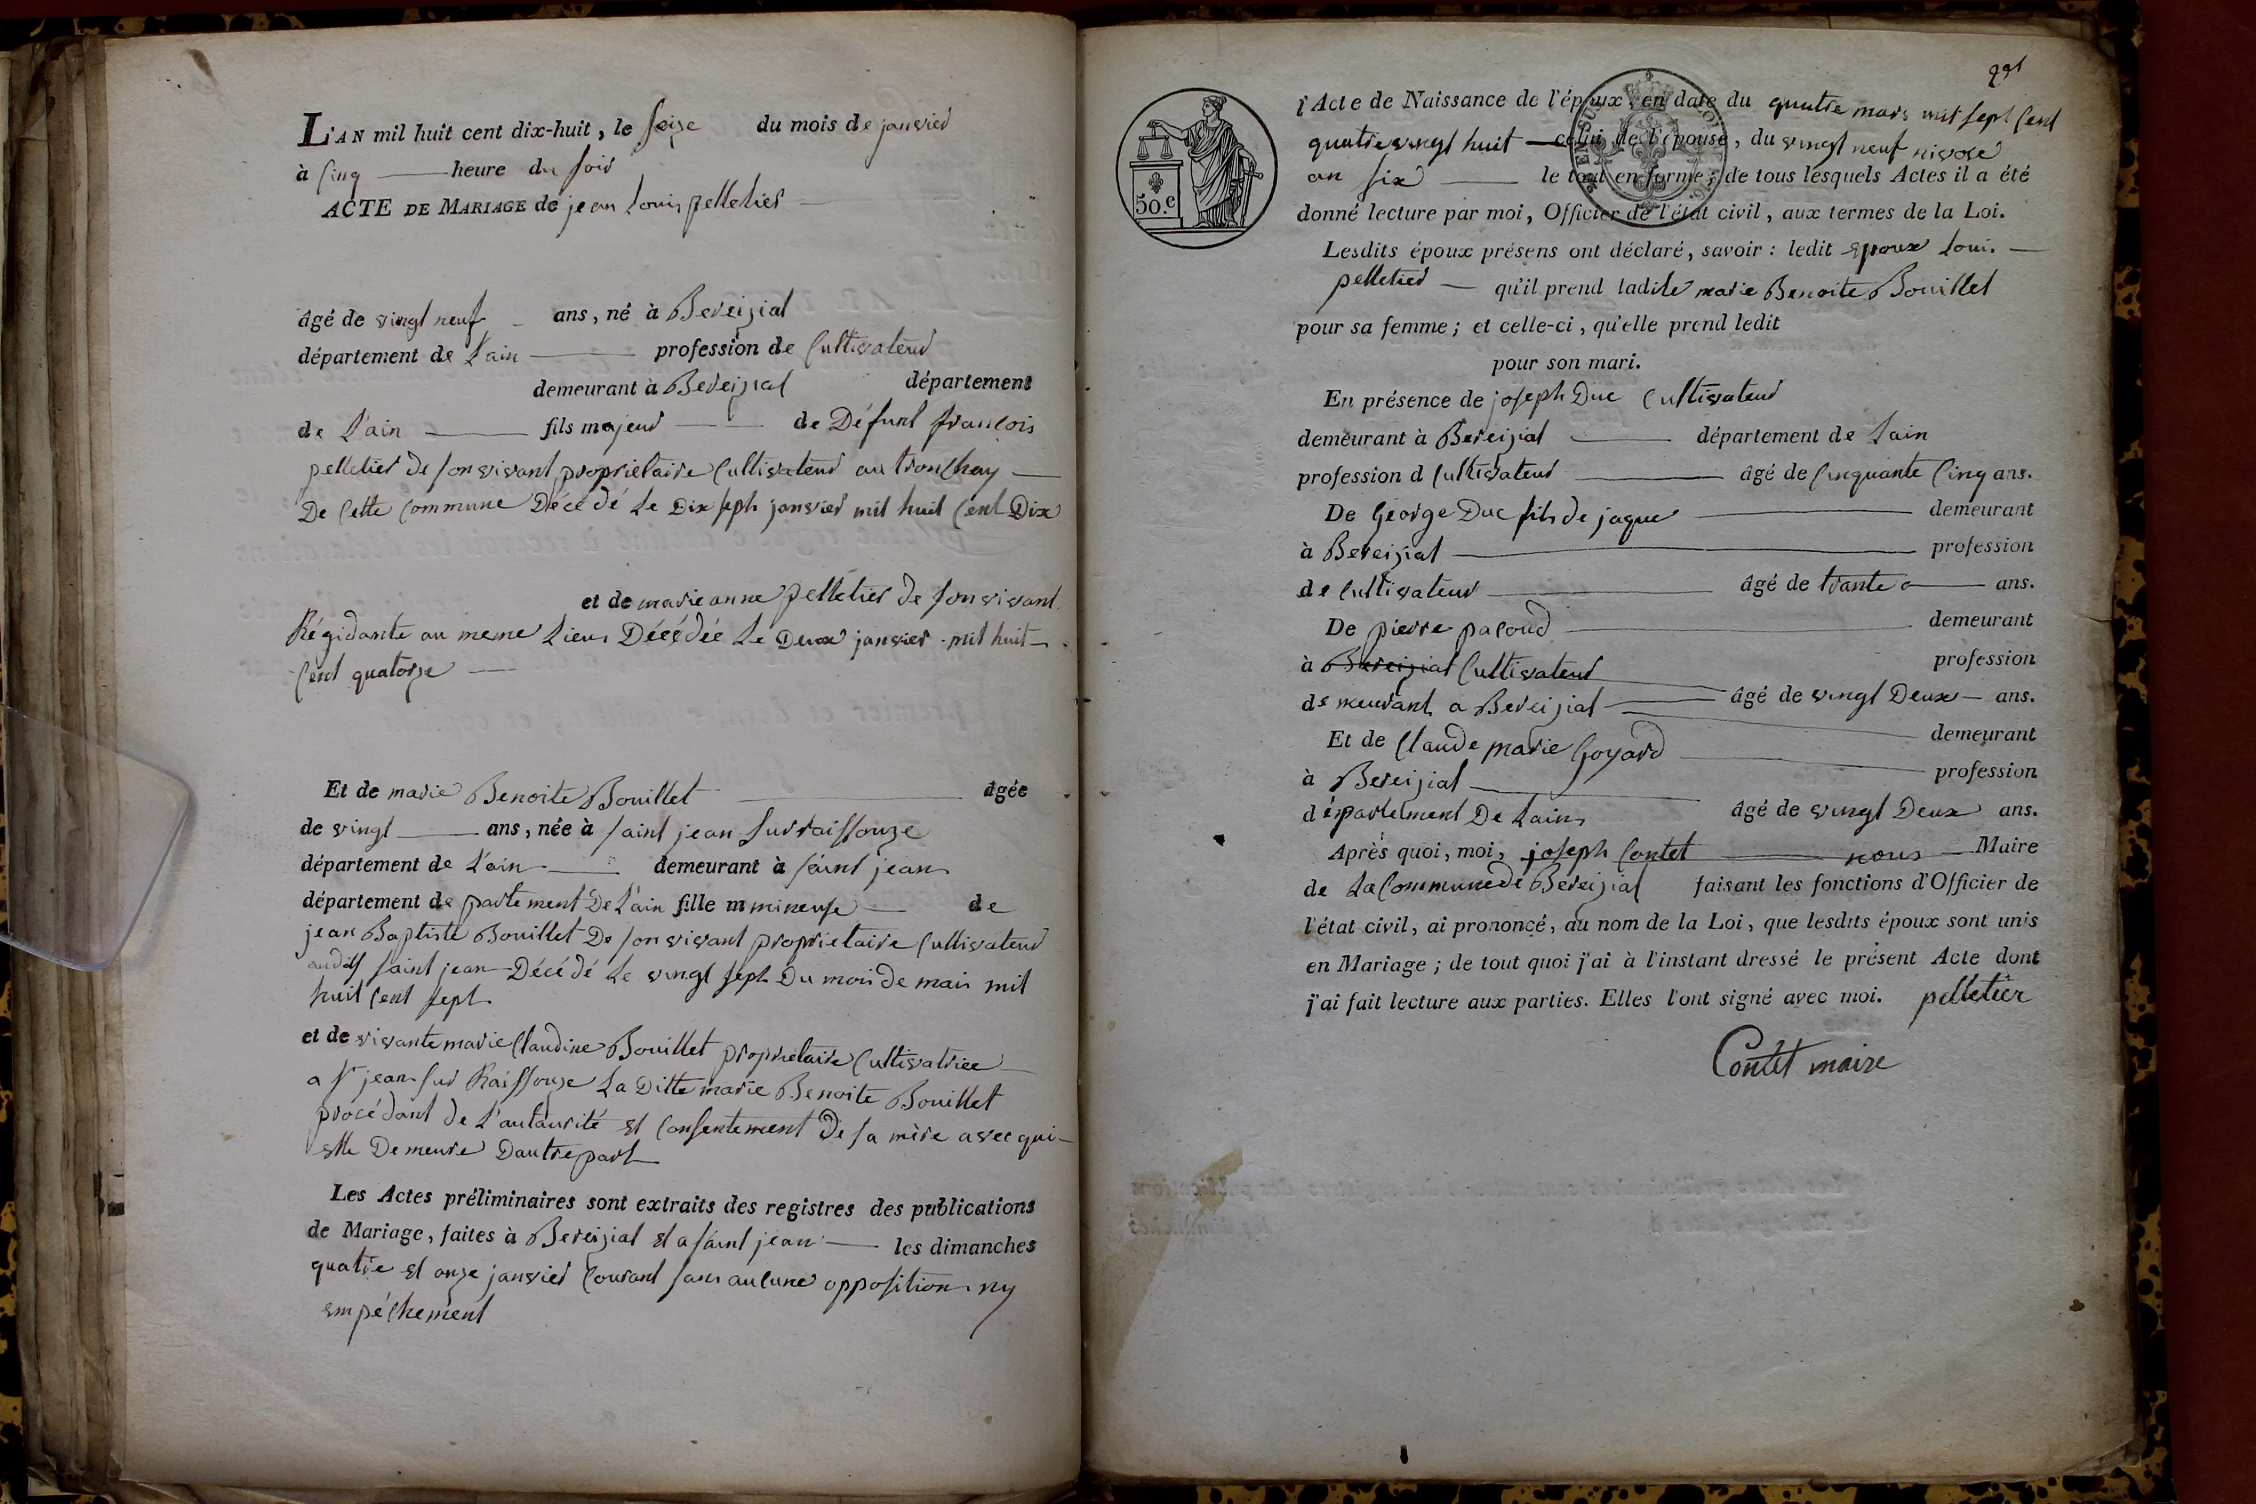 L'AN mil huit cent dix-huit, le seize du mois de janvier
à cinq heure du soir
ACTE DE MARIAGE de jean Louis pelletier
âgé de vingt neuf ans, né à Bereiziat
département de L'ain profession de Cultivateur
demeurant à Bereiziat département
de L'ain fils majeur de Défunt francois
pelletier de son vivant proprietaire Cultivateur au tronchay
De Cette Commune Décédé Le Dix sept janvier mil huit Cent Dix
et de marie anne pelletier de son vivant
Régidante au meme Lieu Décédée Le Deux janvier mil huit
Cent quatorze
Et de marie Benoite Bouillet agée
de vingt ans, née à saint jean sur raissouze
département de L'ain demeurant à saint jean
département de partement De L'ain fille m mineuse de
jean Baptiste Bouillet De son vivant proprietaire Cultivateur
audit saint jean Décédé Le vingt sept Du mois de mais mil
huit Cent sept
et de vivante marie Claudine Bouillet proprietaire Cultivatrice
a st jean sur Raissouze La Ditte marie Benoite Bouillet
procédant de L'autaurité et Consentement De sa mère avec qui
elle Demeure Dautre part
Les Actes préliminaires sont extraits des registres des publications
de Mariage, faites à Bereiziat et a saint jean les dimanches
quatre et onze janvier Courant sans aucune opposition ny
empéchement
50.c
l'Acte de Naissance de l'époux, en date du quatre mars mil sept Cent
quatrevingt huit celui de l'épouse, du vingt neuf nivose
an six le tout en forme; de tous lesquels Actes il a été
donné lecture par moi, Officier de l'état civil, aux termes de la Loi.
Lesdits époux présens ont déclaré, savoir : ledit epoux Loui.
pelletier qu'il prend ladite marie Benoite Bouillet
pour sa femme ; et celle-ci, qu'elle prend ledit
pour son mari.
En présence de joseph Duc Cultivateur
demeurant à Bereiziat département de Lain
profession d Cultivateur âgé de Cinquante Cinq ans.
De George Duc fils de jaque demeurant
à Bereiziat profession
de Cultivateur âgé de trante ans.
De pierre pacoud demeurant
à Bereiziat Cultivateur profession
de meurant a Bereiziat âgé de vingt Deux ans.
Et de Claude marie Goyard demeurant
à Bereiziat profession
département De Lain âgé de vingt Deux ans.
Après quoi, moi, joseph Contet nous Maire
de La Commune de Bereiziat faisant les fonctions d'Officier de
l'état civil, ai prononcé, au nom de la Loi, que lesdits époux sont unis
en Mariage ; de tout quoi j'ai à l'instant dressé le présent Acte dont
j'ai fait lecture aux parties. Elles l'ont signé avec moi. pelletier
Contet maire